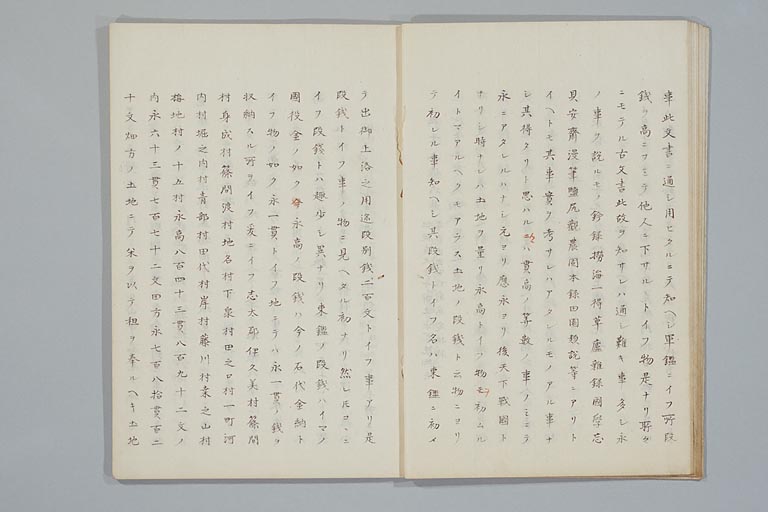 車此文書ニ通シ用ヒタルニテ知ヘシ軍鑑ニイフ所段
錢ヲ高ニフミテ他人ニ下サルヽトイフ物是ナリ斯々
ニモテル古文書此故ヲ知サレハ通シ難キ事多シ永
ノ事ヲ説ルモノ鈴録撈海一得草盧雜録國學忘
貝安齋漫筆鹽尻觀農固本録田園類説等ニアリト
イヘトモ其事實ヲ考サレハアタレルモノアル事ナ
シ其得タリト思ハルヽハ貫高ノ算數ノ事ノミニテ
永ニアタレルハナシ元ヨリ應永ヨリ後天下戰國ト
ナリシ時ナレハ土地ヲ量リ永高トイフ物ヲ初ムル
イトマアルヘクモアラス土地ノ段錢ト云物ニヨリ
テ初レル事知ヘシ其段錢トイフ名ハ東鑑ニ初メ
テ出御上洛之用途段別錢二百文トイフ事アリ是
段錢トイフ事ノ物ニ見ヘタル初ナリ然レ𪜈コヽニ
イフ段錢トハ趣少シ異ナリ東鑑ノ段錢ハイマノ
國役金ノ如ク永高ノ段錢ハ今ノ石代金納ト
イフ物ノ如ク永一貫トイフ地ニテハ永一貫ノ錢ヲ
収納スル所ヲイフ爰ニイフ志太郡伊久美村篠間
村身成村篠間渡村地名村下泉村田之口村一町河
内村堀之内村青部村田代村岸村藤川村桑之山村
梅地村ノ十五村永高八百四十三貫八百九十二文ノ
内永六十三貫七百七十二文田方永七百八拾貫百二
十文畑方ノ土地ニテ米ヲ以テ租ヲ奉ルヘキ土地